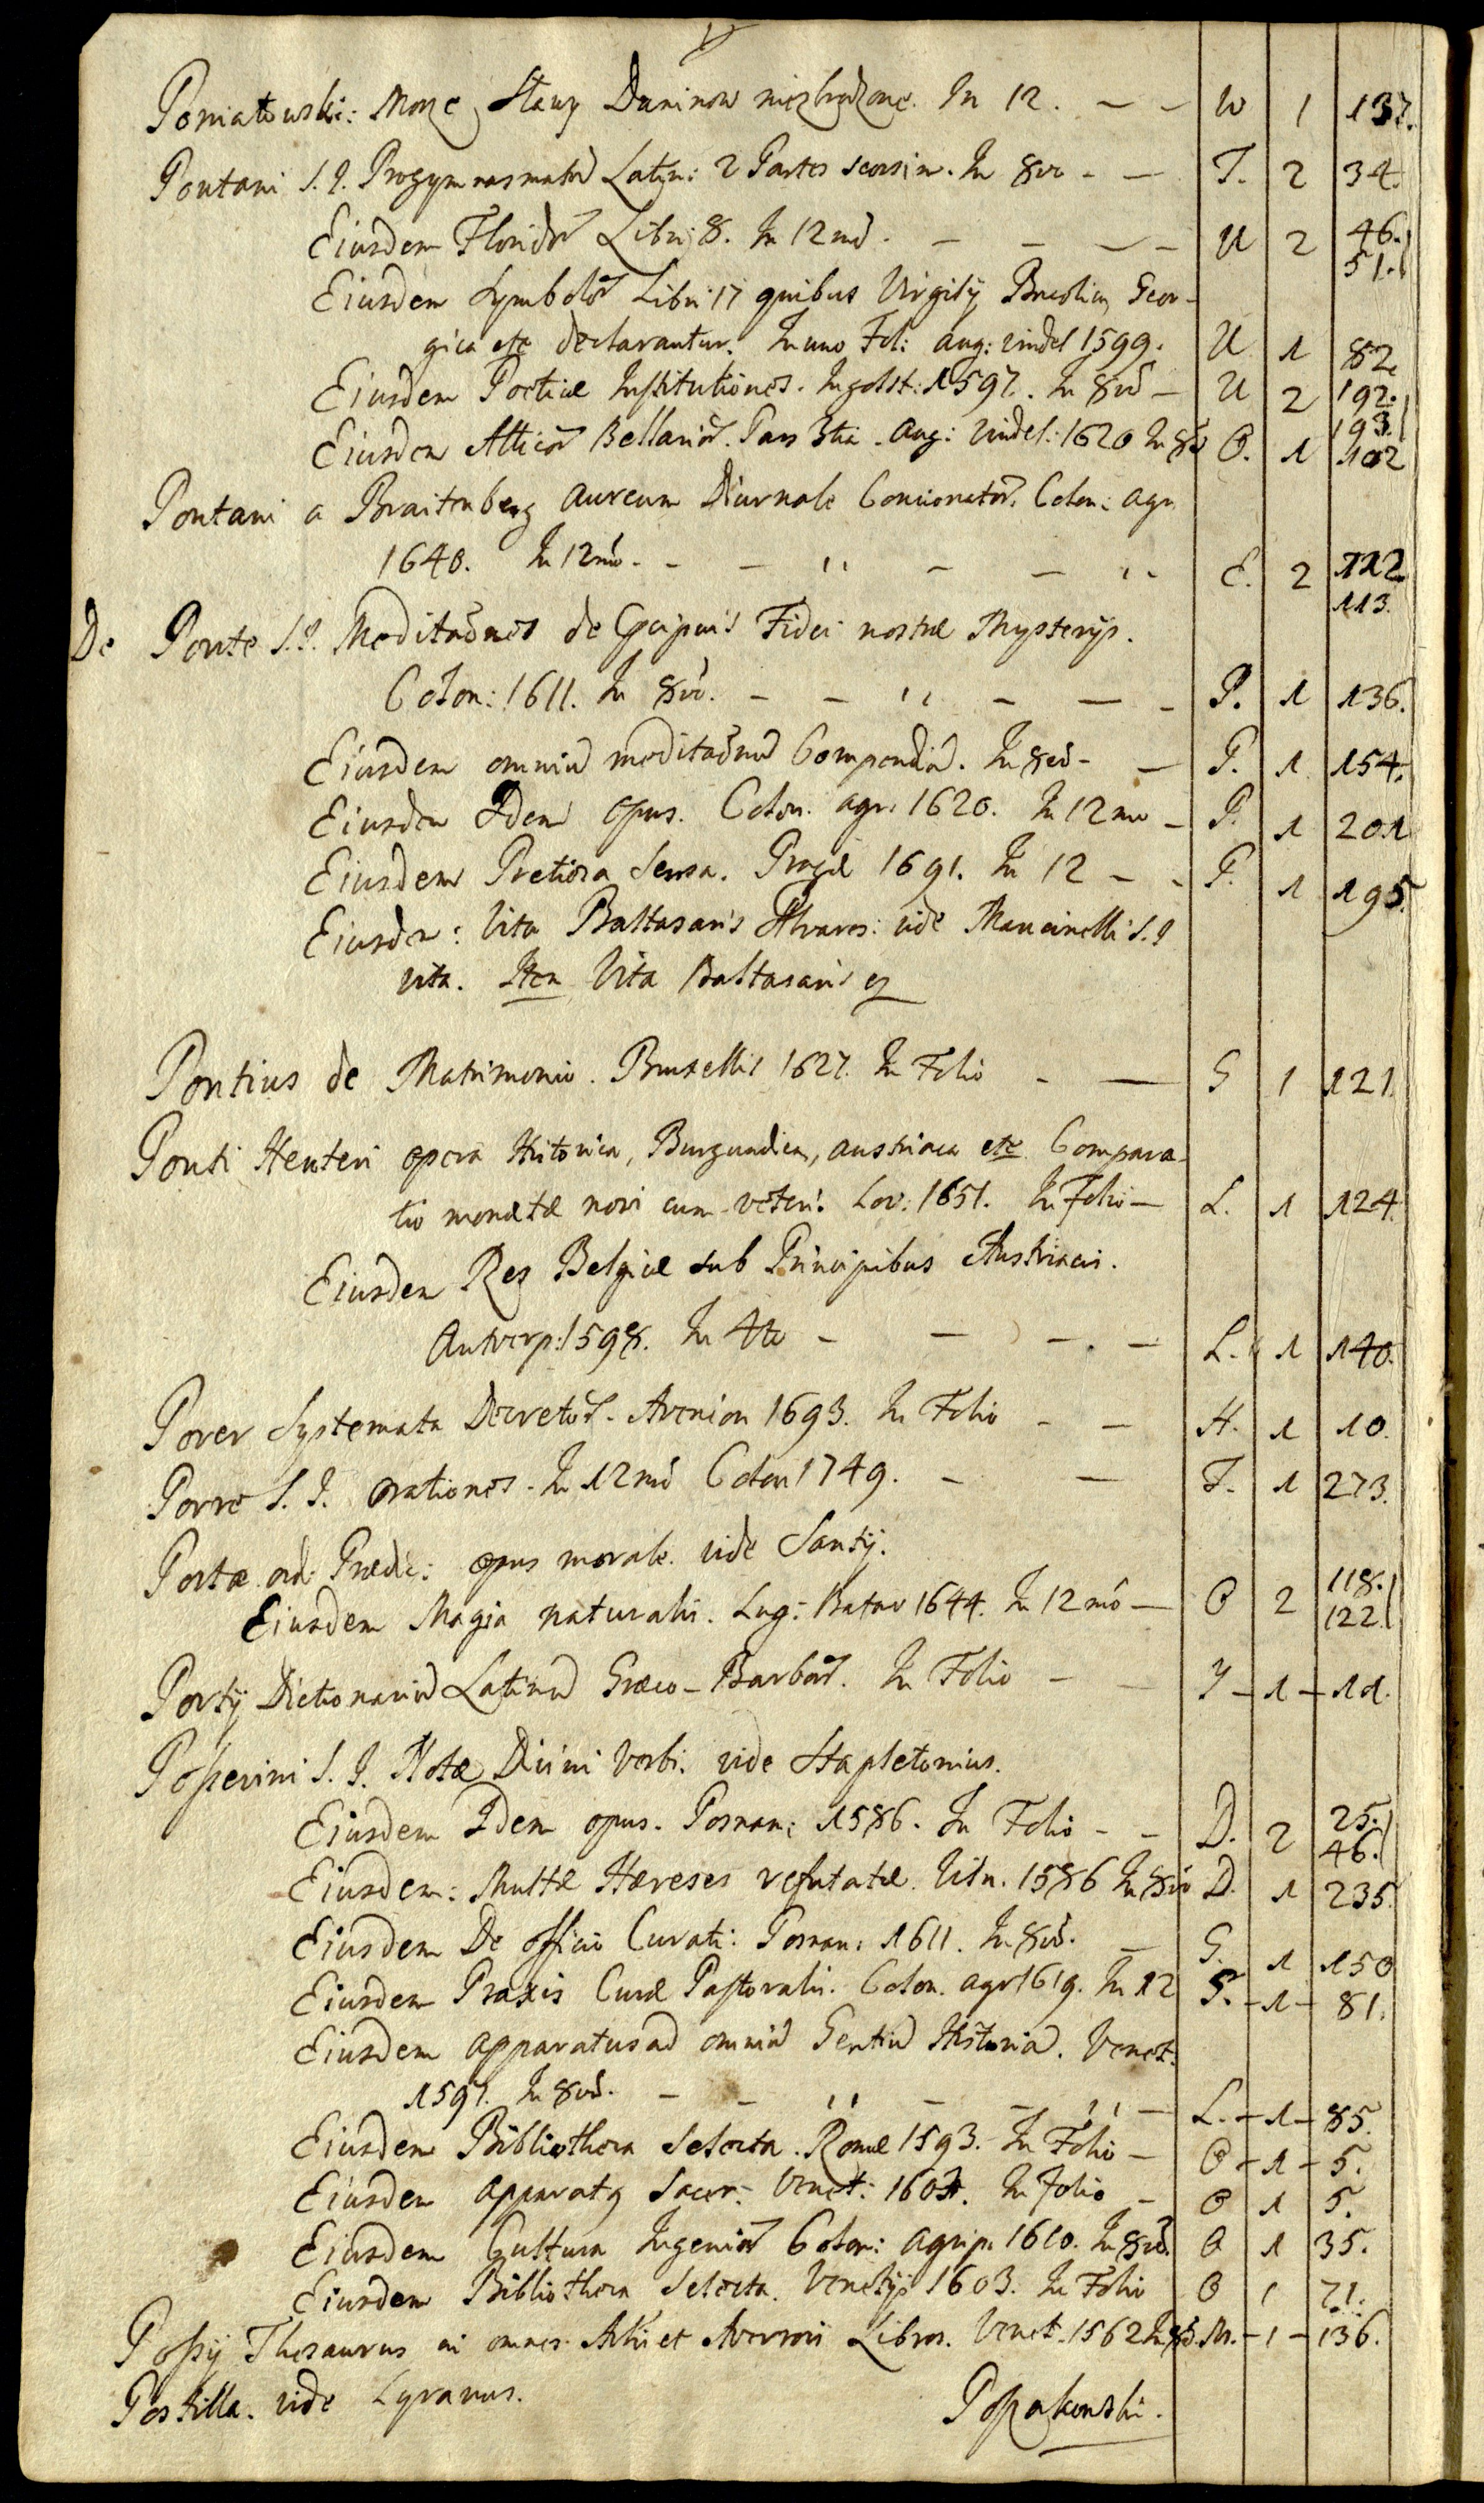 Poniatowski: Morze Sławy Duninow niezbrodzone. In 12. — — W 1 137.
Pontani S. J. Progymnasmatũ Latin: 2 Partes seorsim. In 8vo — — T. 2 34.
46.
Eiusdem Floridoȓ Libri 8. In 12mõ. — — — — U 2
51.
Eiusdem Symboloȓ Libri 17 quibus Virgilij Bucolica, Geor-
gica etc declarantur. In uno Fol: Aug: Vindel 1599. U 1 82
Eiusdem Poeticæ Institutiones. Ingolst: 1597. In 8võ — U 2 192.
193.
Eiusdem Atticoȓ Bellarioȓ. Pars 3tia. Aug: Vindel: 1620 In 8vo O. 1 102
Pontani a Braitenberg Aureum Diurnale Concionatoȓ. Colon: agr
1640. In 12mõ. — — ,, — — ,, E. 2 112.
113.
De Ponte S. J. Meditaõnes de Præcipuis Fidei nostræ Mysterijs.
Colon: 1611. In 8võ. — — ,, — — — P. 1 136.
Eiusdem omniũ meditaõnũ Compendiũ. In 8võ — — P. 1 154.
Eiusdem Idem opus. Colon. agr: 1620. In 12mo — P. 1 201
Eiusdem Pretiosa Sensa. Pragæ 1691. In 12 — — P. 1 195.
Eiusdem: Vita Baltasaris Alvares: vide Mancinelli S. J
vita. Item Vita Baltasaris
Pontius de Matrimonio. Bruxellis 1627. In Folio — — G 1 121.
Ponti Heuteri opera Historica, Burgundica, Austriaca etc Compara-
tio monetæ novi cum veteri. Lov: 1651. In Folio — L. 1 124.
Eiusdem Res Belgicæ sub Principibus Austriacis.
Antverp: 1598. In 4to — — — — L. 1 140.
Porer Systemata Decretoȓ. Avenion 1693. In Folio — — H. 1 10.
Porre S. J. Orationes. In 12mõ Colon 1749. — — T. 1 273.
Portæ ord: Prædic: opus morale. vide Santij.
118.
Eiusdem Magia naturalis. Lug: Batav 1644. In 12mõ — O 2
122.
Portij Dictionariũ Latinũ Græco-Barbaȓ. In Folio — — Y — 1 — 11.
Possevini S. J. Notæ Divini Verbi. vide Stapletonius.
25.
Eiusdem Idem opus. Posnan: 1586. In Folio — — D. 2
46.
Eiusdem: Multæ Hæreses refutatæ. Viln. 1586 In 8vo D. 1 235.
Eiusdem De officio Curati: Posnan: 1611. In 8võ. — G. 1 150
Eiusdem Praxis Curæ Pastoralis. Colon. agr 1619. In 12 — 1 — 81.
Eiusdem Apparatus ad omniũ Gentiũ Historiã. Venet:
1597. In 8võ. — — ,, — — ,, — L. — 1 — 85.
Eiusdem Bibliotheca Selecta. Romæ 1593. In Folio — O — 1 — 5.
Eiusdem Apparatg Sacer. Venet: In Folio — O 1 5.
Eiusdem Cultura Ingenioȓ Colon: agrip: 1610. In 8võ. O 1 35.
Eiusdem Bibliotheca Selecta. Venetijs 1603. In Folio O 1 71.
Possij Thesaurus in omnes Arlis et Averrois Libros. Venet. 1562 In 8. M. — 1 — 136.
Postilla. vide Lyranus.
Poszakowski.